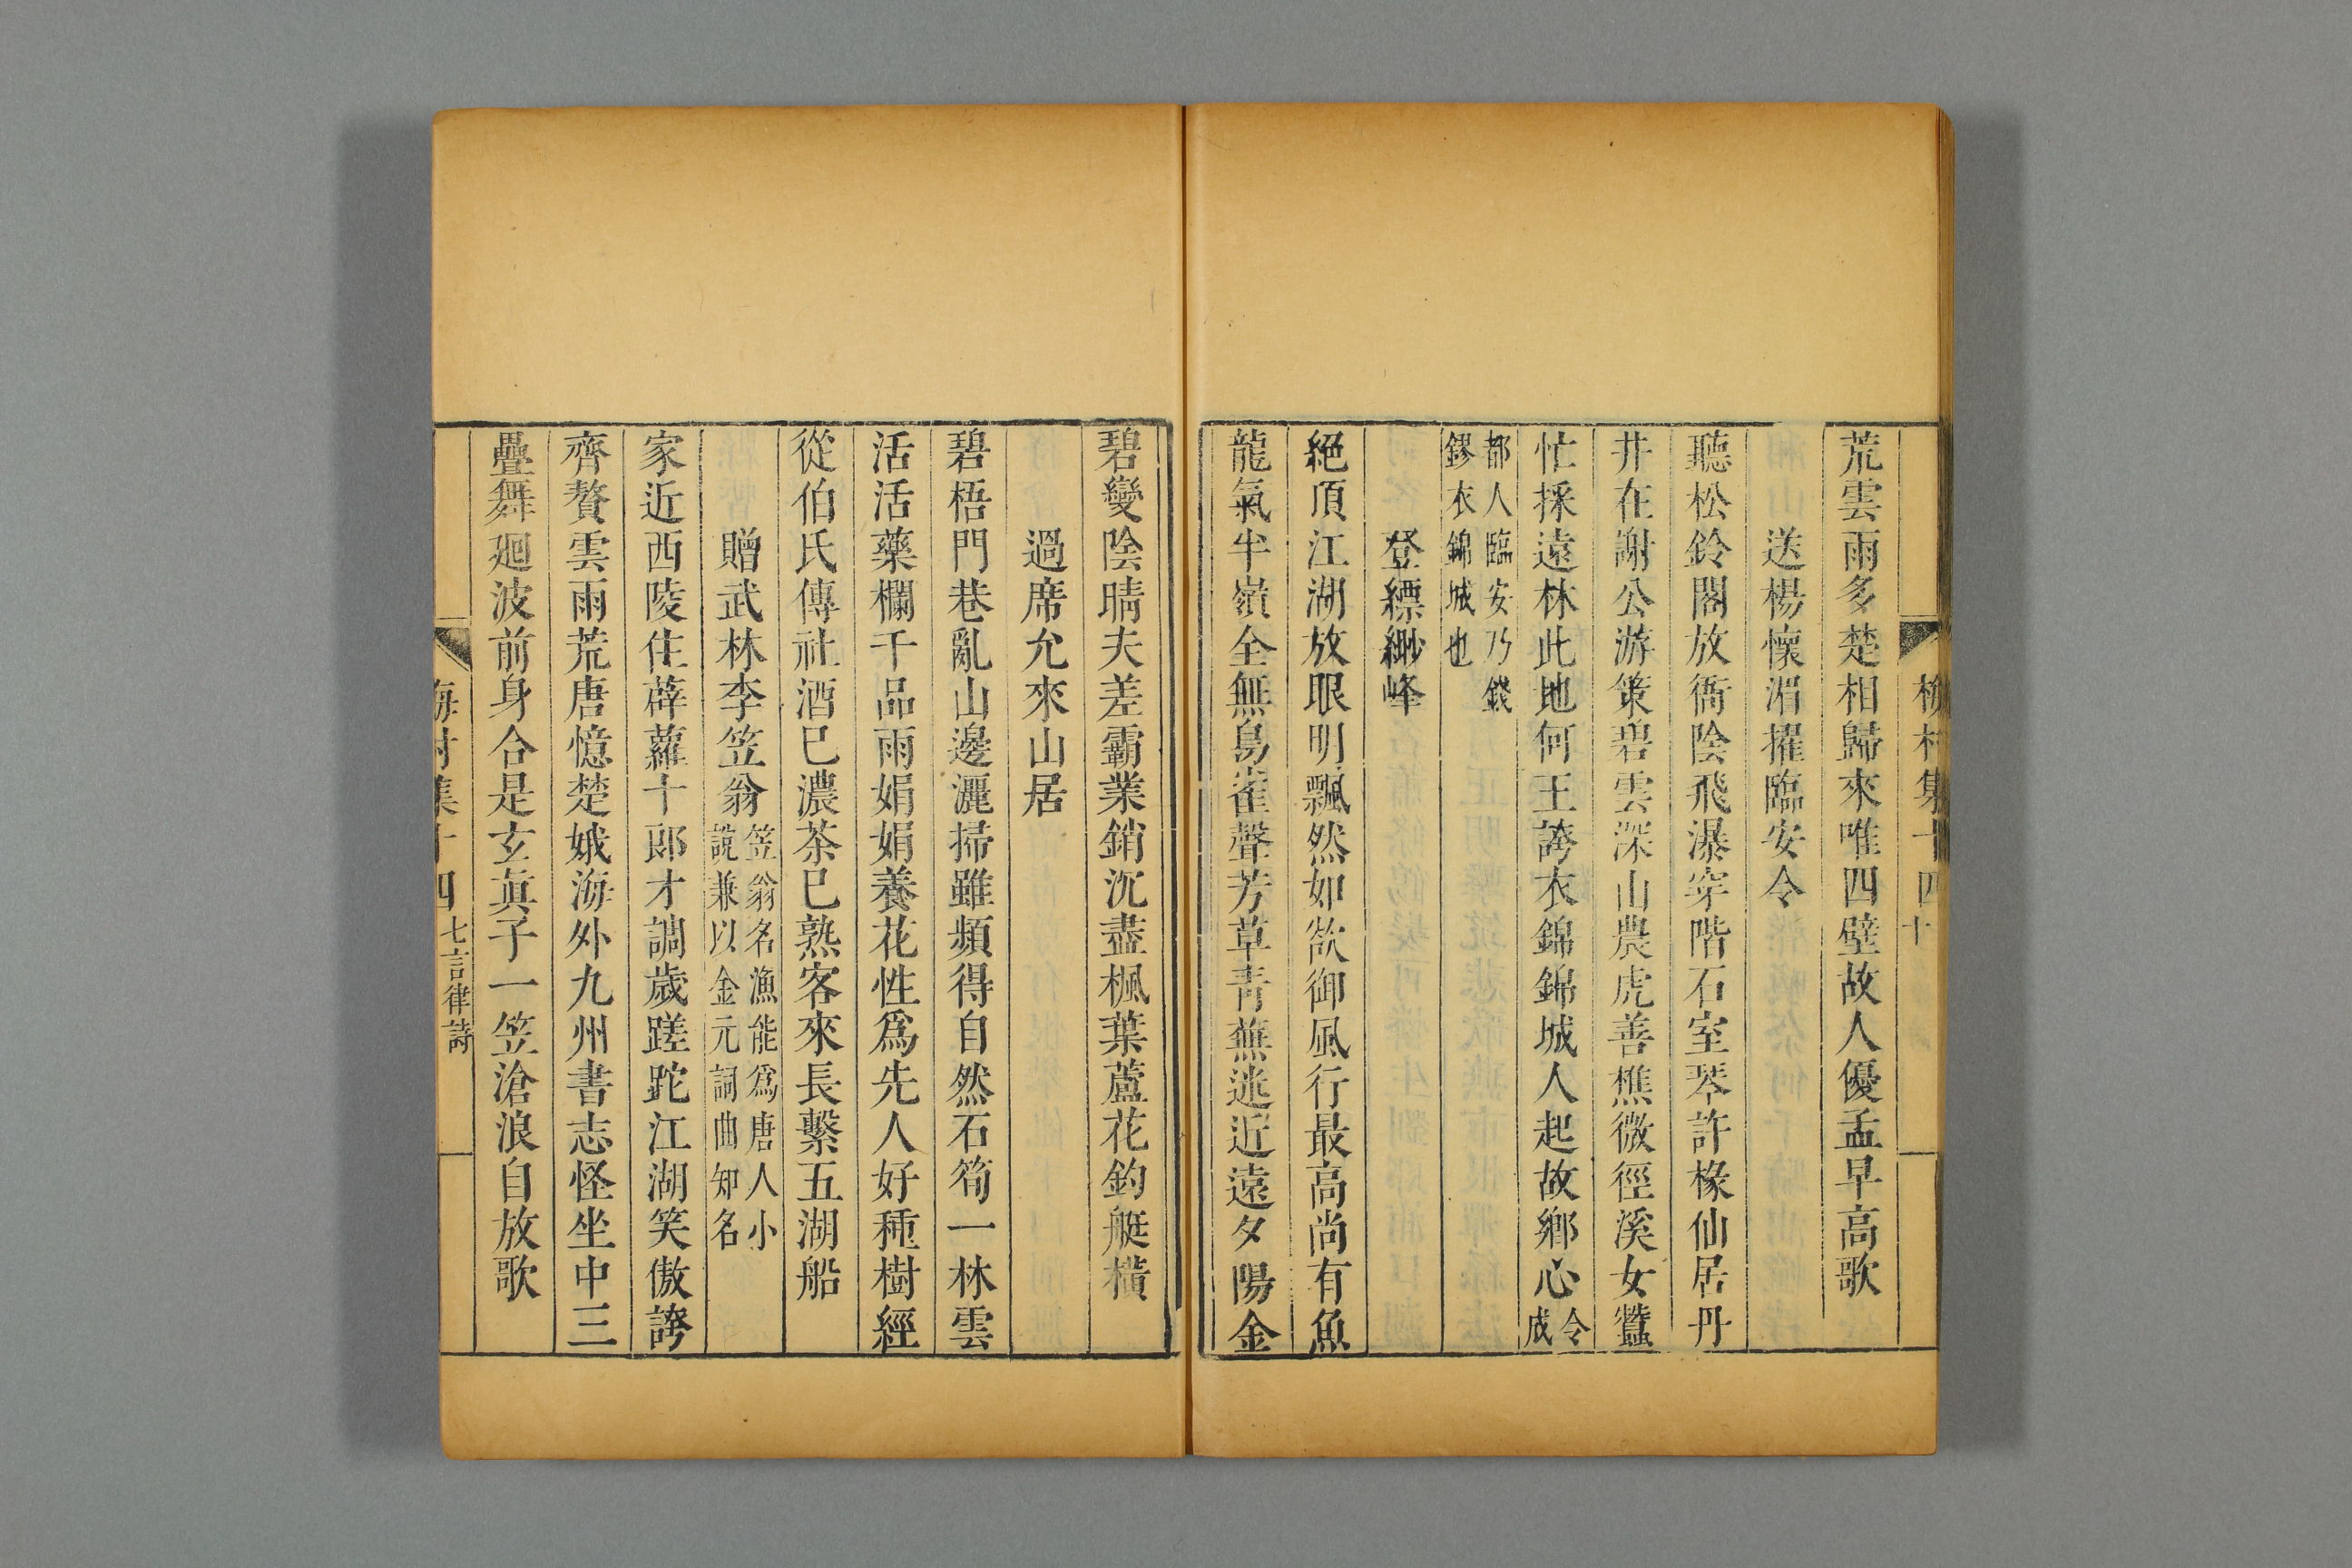 梅村集十四 十
荒雲雨多楚相歸來唯四壁故人優孟早高歌
送楊懷湄擢臨安令
聽松鈴閣放衙陰飛瀑穿階石室琴許椽仙居丹
井在謝公游策碧雲深山農虎善樵微徑溪女蠶
忙採遠林此地何王誇衣錦錦城人起故鄉心令成
都人臨安乃錢
鏐衣錦城也
登縹緲峰
絕頂江湖放眼明飄然如欲御風行最高尚有魚
龍氣半嶺全無鳥雀聲芳草青蕪迷近遠夕陽金
碧變陰晴夫差霸業銷沉盡楓葉蘆花釣艇橫
過席允來山居
碧梧門巷亂山邊灑掃雖頻得自然石筍一林雲
活活藥欄千品雨娟娟養花性爲先人好種樹經
從伯氏傳社酒已濃茶已熟客來長繫五湖船
贈武林李笠翁笠翁名漁能爲唐人小
說兼以金元詞曲知名
家近西陵住薜蘿十郎才調歲蹉跎江湖笑傲誇
齊贅雲雨荒唐憶楚娥海外九州書志怪坐中三
疊舞廻波前身合是玄眞子一笠滄浪自放歌
梅村集十四 七言律詩